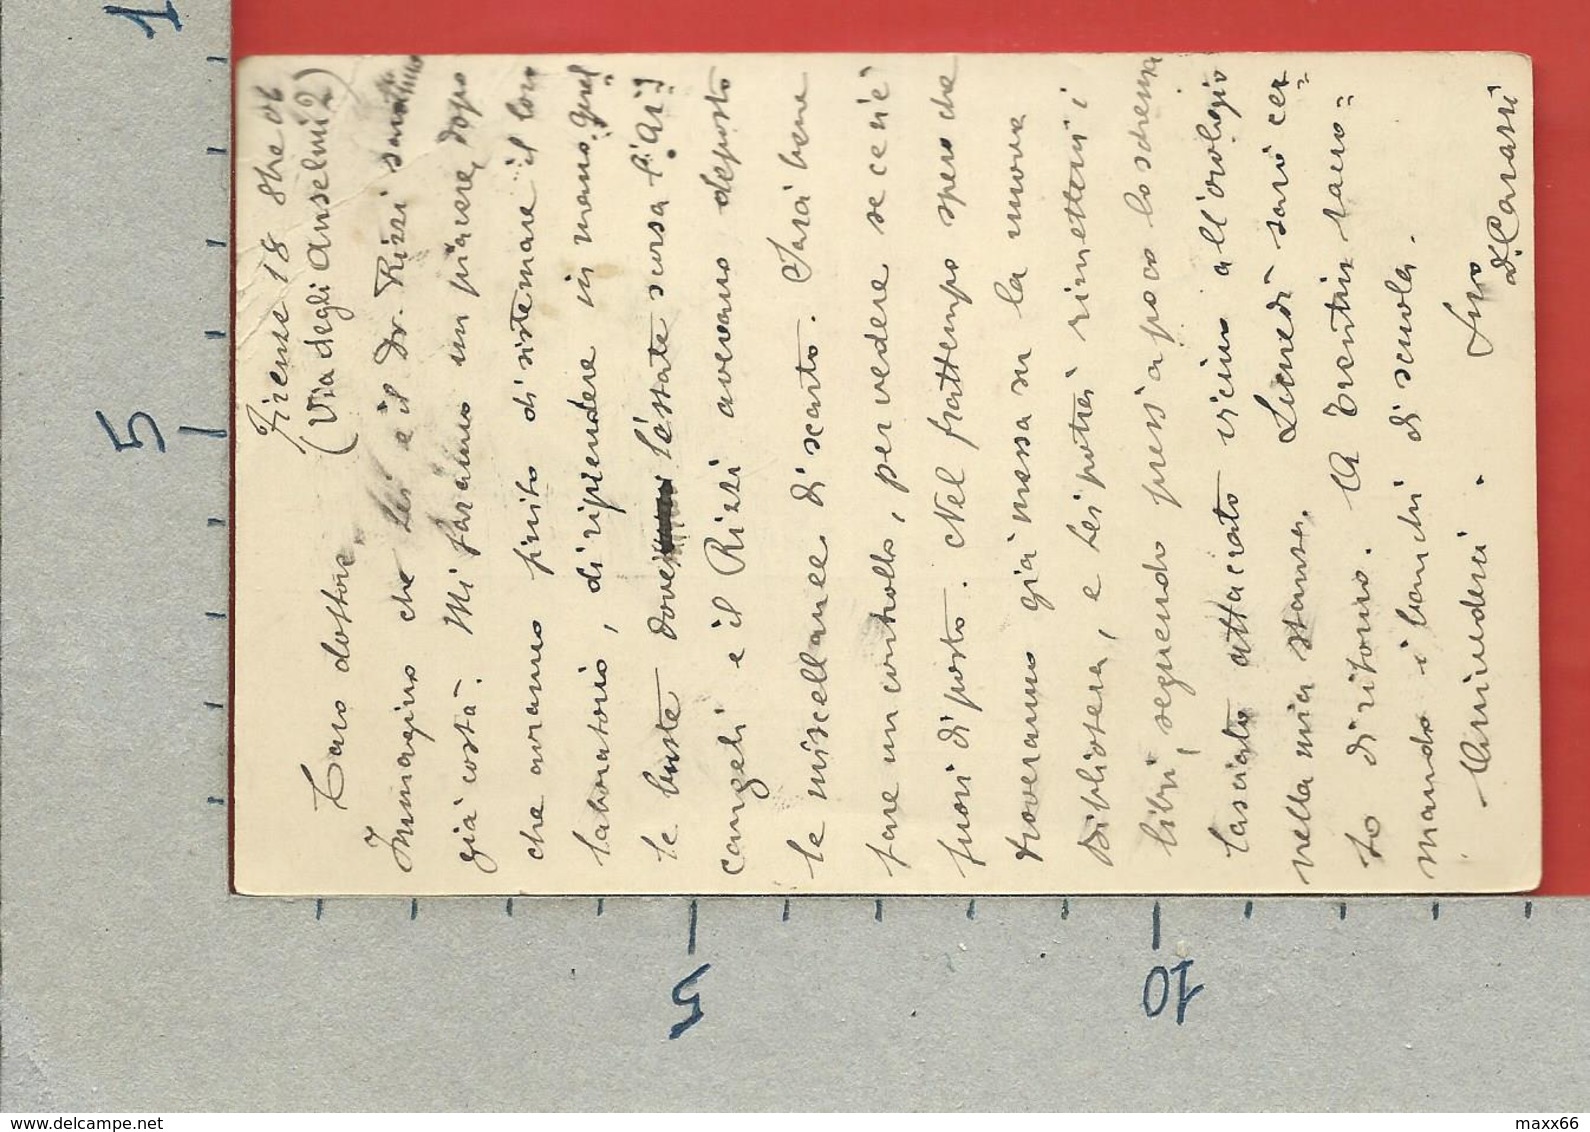 Firenze 18 8bre 06
(Via degli Anselmi 2)
Caro dottore,
Immagino che Lei e il Dr. Rizzi saranno
già costà. Mi faranno un piacere, dopo
che avranno finito di sistemare il loro
laboratorio, di riprendere in mano quel
le buste dove l'estate scorsa l'Ar=
cangeli e il Rizzi avevano deposto
le miscellanee di scarto. Sarà bene
fare un controllo, per vedere se ce n'è
fuori di posto. Nel frattempo spero che
troveranno già messa su la nuova
Biblioteca, e Lei potrà rimettervi i
libri, seguendo press'a poco lo schema
lasciato attaccato vicino all'orologio
nella mia stanza. Lunedì sarò cer=
to di ritorno. A Trentin racco=
mando i banchi di scuola.
Amichevoli.
Suo
A. Carassi
1
5
5
10
www.delcampe.net
maxx66